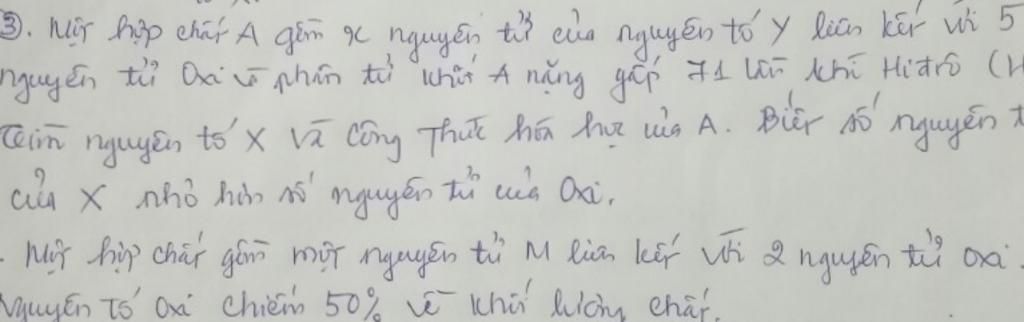 3. Một hợp chất A gồm x nguyên tử của nguyên tố Y liên kết với 5
nguyên tử Oxi và phân tử khối A nặng gấp 71 lần khí Hiđrô (H
Tìm nguyên tố X và Công Thức hóa học của A. Biết số nguyên t
của X nhỏ hơn số nguyên tử của Oxi.
. Một hợp chất gồm một nguyên tử M liên kết với 2 nguyên tử oxi.
Nguyên Tố Oxi chiếm 50% về khối lượng chất.